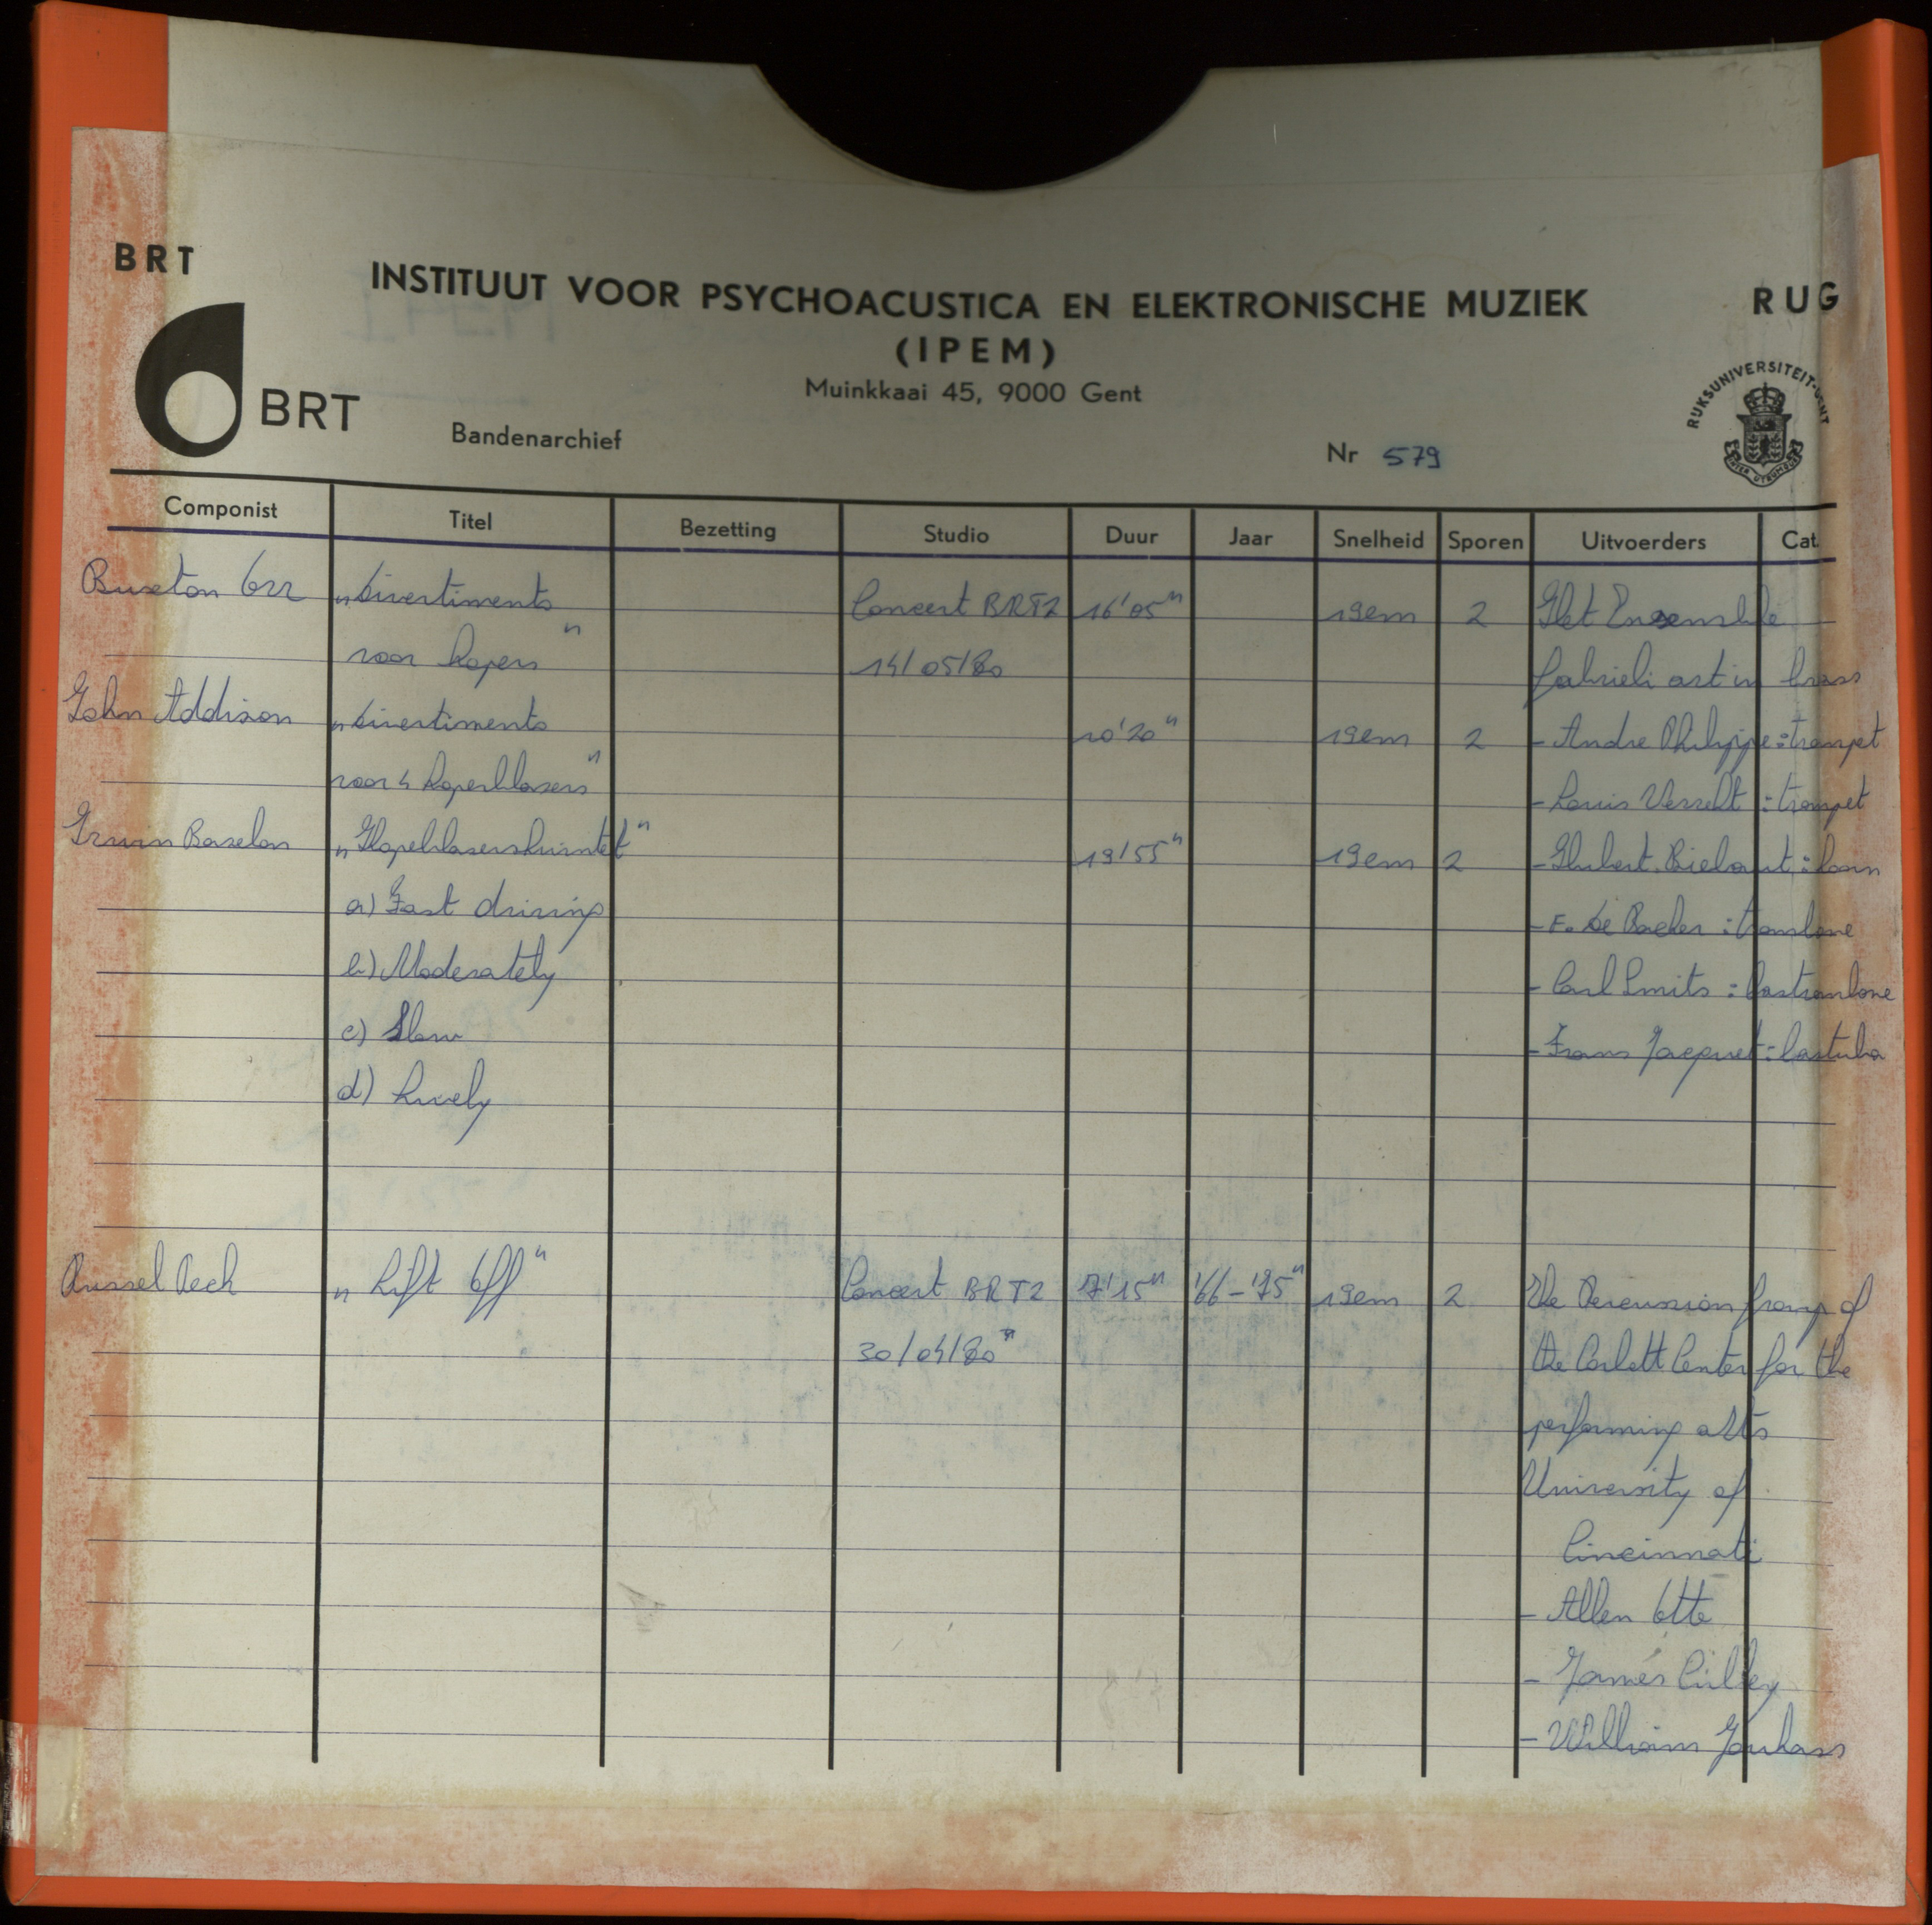 BRT
INSTITUUT VOOR PSYCHOACUSTICA EN ELEKTRONISCHE MUZIEK
RUG
(IPEM)
Muinkkaai 45, 9000 Gent
BRT
Bandenarchief
Nr 579
RIJKSUNIVERSITEIT-GENT
INTER UTRUMQUE
Componist Titel Bezetting Studio Duur Jaar Snelheid Sporen Uitvoerders Cat.
Buxton Orr "Divertimento Concert BRT2 16'05" 19cm 2 Het Ensemble
voor kopers" 14/05/80 Gabrieli art in brass
John Addison "Divertimento 10'20" 19cm 2 - Andre Philippe : trompet
voor 4 koperblazers" - Louis Verselt : trompet
Irwin Baselon "Koperblaserskwintet" 19'55" 19cm 2 - Hubert Bielaut : hoorn
a) Fast driving - F. De Backer : trombone
b) Moderately - Carl Smits : bastrombone
c) Slow - Frans Jacquet : bastuba
d) Lively
Russel Peck "Lift Off" Concert BRT2 17'15" '66-'75" 19cm 2 The Percussion group of
30/04/80" the Corbett Center for the
performing arts
University of
Cincinnati
- Allen Otte
- James Culley
- William Youhass